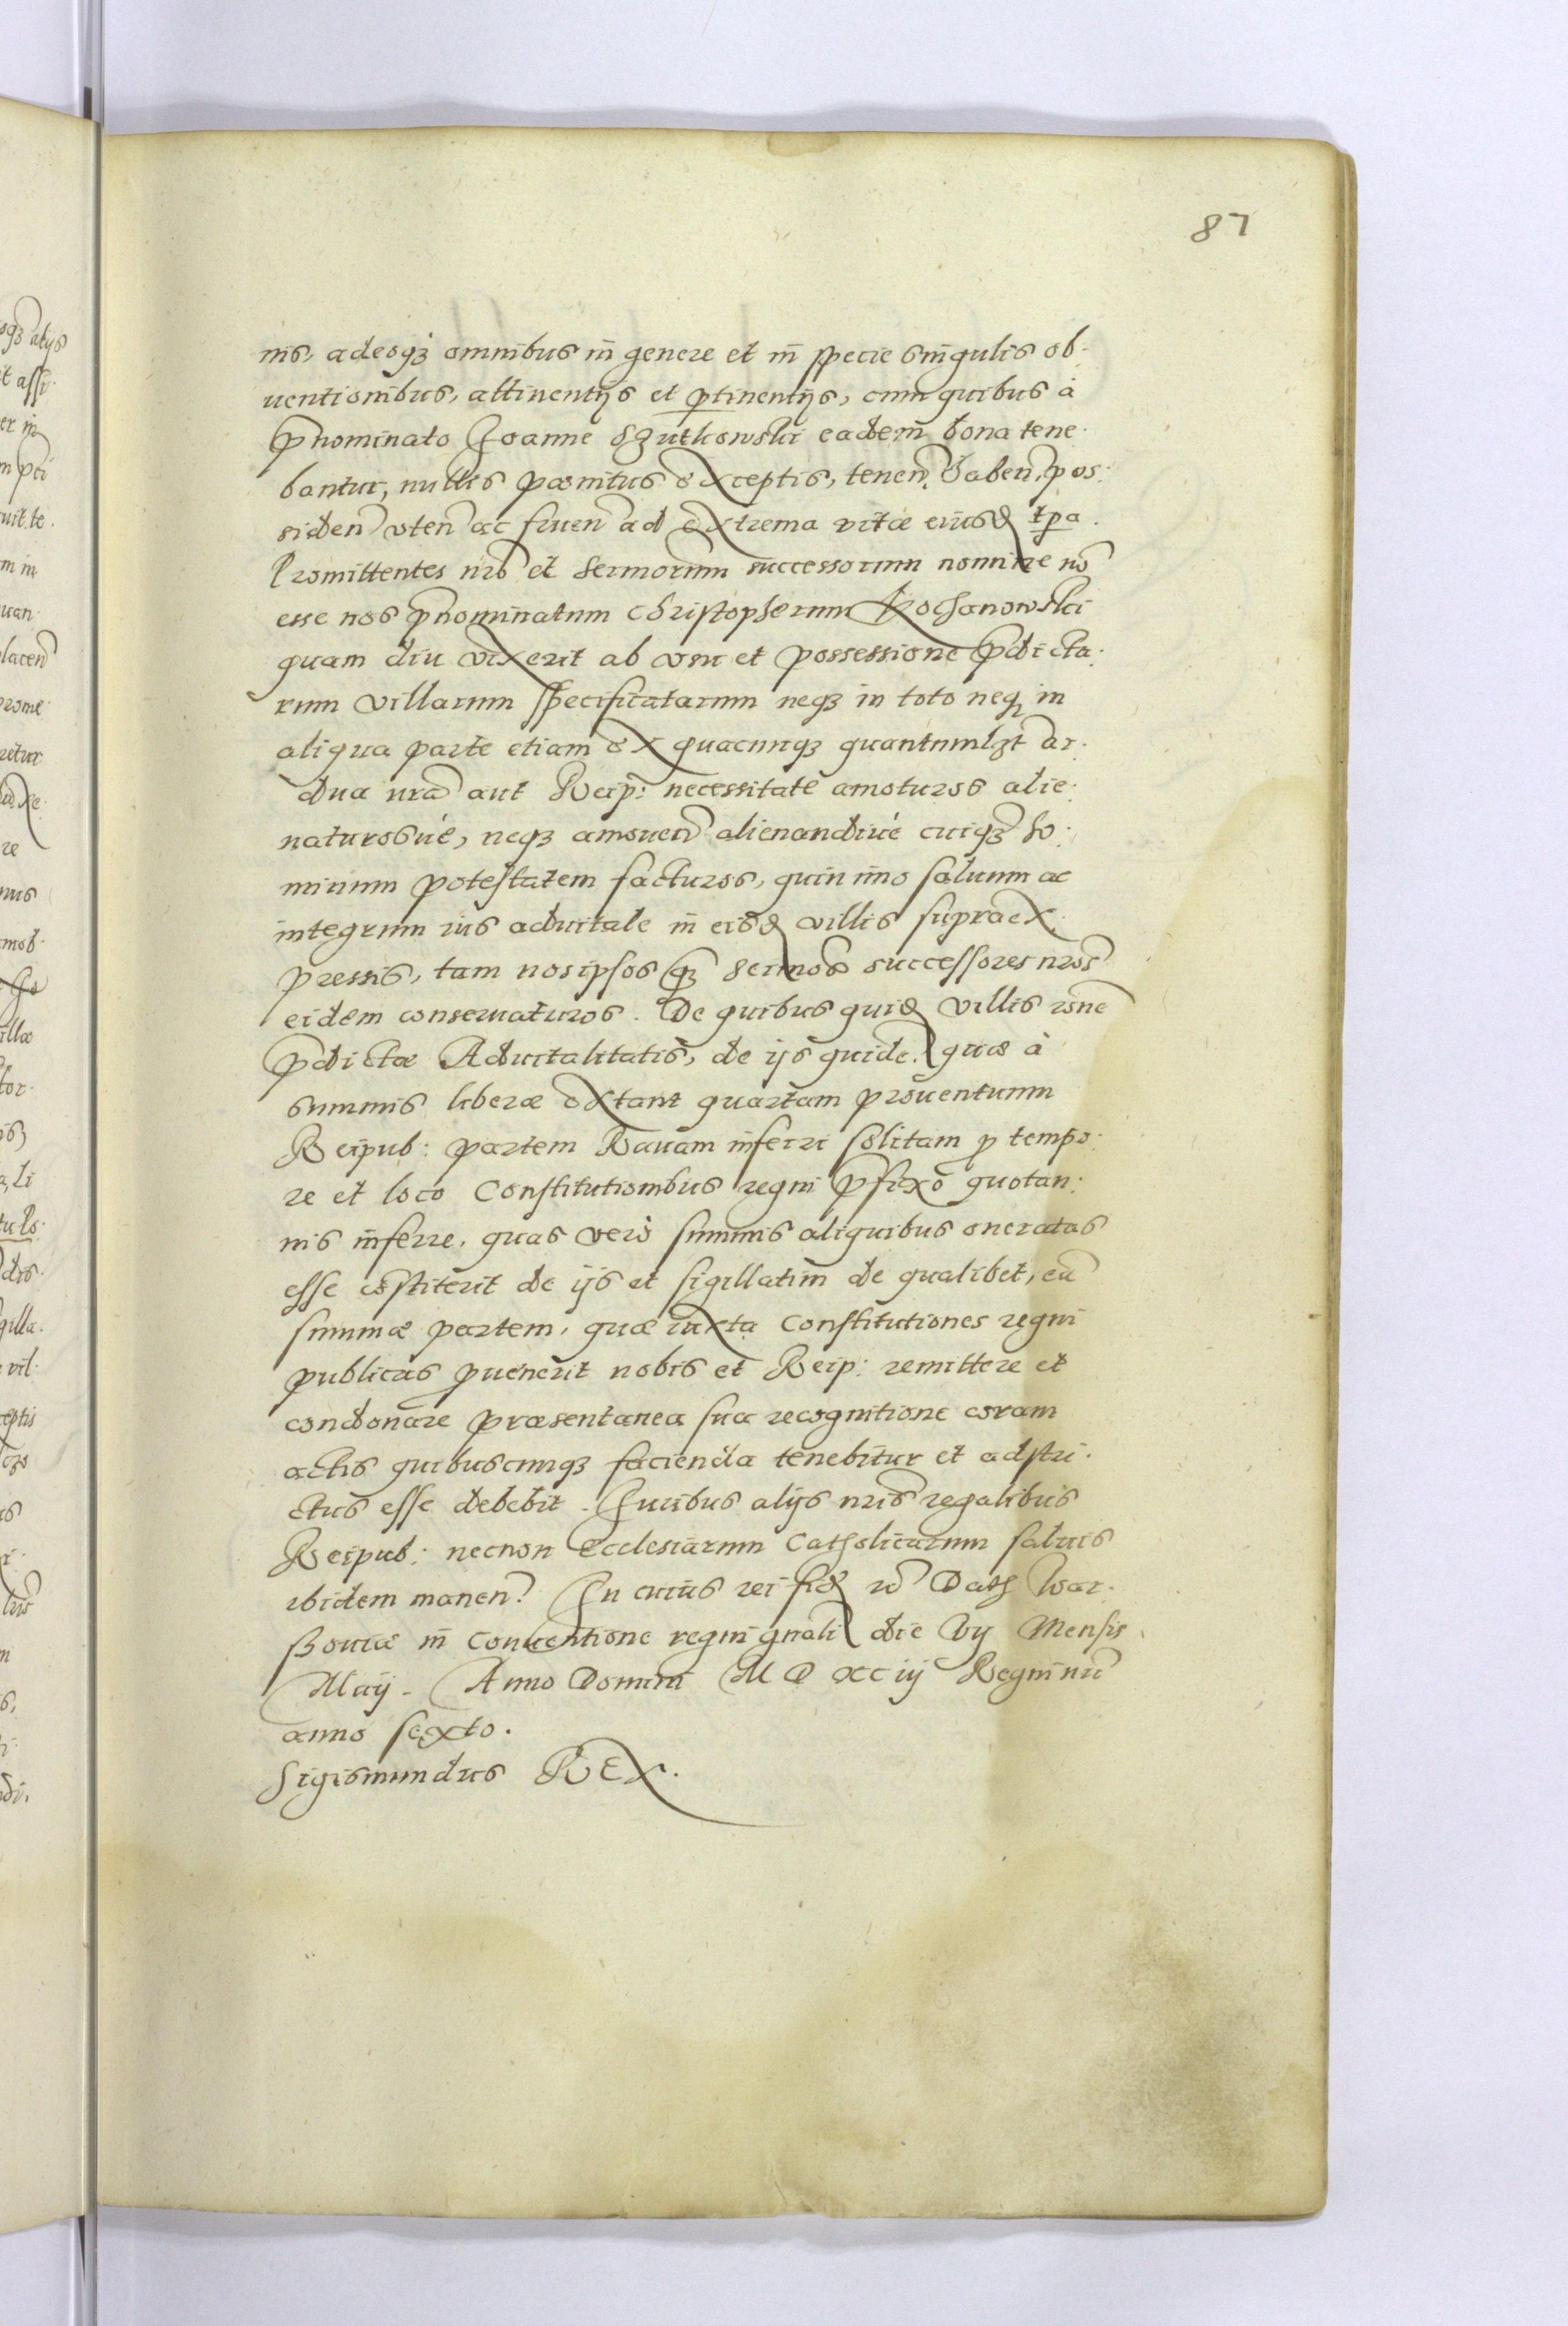 87
nis, adeoq3 omnibus in genere et in specie singulis ob-
uentionibus, attinentijs et ptinentijs, cum quibus à
pnominato Joanne Szutkowski eadem bona tene-
bantur, nullis pœnitus exceptis, tenen. haben. pos-
siden uten ac fruen ad extrema vitæ eiusd tpa.
Promittentes nro et sermorum successorum nomine no
esse nos pnominatum Christopherum Kochanowski
quam diu vixerit ab usu et possessione pdicta-
rum villarum specificatarum neq3 in toto neq in
aliqua parte etiam ex quacunq3 quantumlzt ar-
dua nra aut Reip: necessitate amoturos alie-
naturosuè, neq3 amouen alienandiuè cuiq3 ho-
minum potestatem facturos, quin imo saluum ac
integrum ius aduitale in eisd villis supraex-
pressis, tam nos ipsos q3 sermos successores nros
eidem conseruaturos. De quibus quid villis rone
pdictæ Aduitalitatis, de ijs quide. quæ à
summis liberæ extant quartam prouentuum
Reipub: partem Rauam inferri solitam p tempo-
re et loco Constitutionibus regni pfixo quotan-
nis inferre, quas verò summis aliquibus oneratas
esse costiterit de ijs et sigillatim de qualibet, ea
summæ partem, quæ iuxta Constitutiones regni
publicas puenerit nobis et Reip: remittere et
condonare præsentanea sua recognitione coram
actis quibuscunq3 facienda tenebitur et adstri-
ctus esse debebit. Juribus alijs nris regalibus
Reipub: necnon Ecclesiarum Catholicarum saluis
ibidem manen. In cuius rei fid Dath War-
souiæ in Conuentione regni gnali die vij Mensis
Maij. Anno Domini MDXCiij Regni nri
anno sexto.
Sigismundus REX.